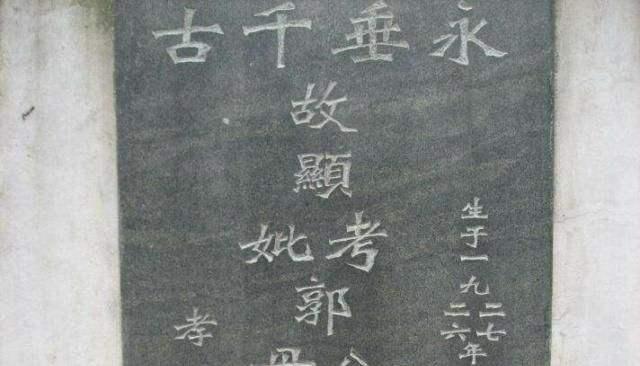 永垂千古
生于一九二七二六年
故顯考妣郭
孝